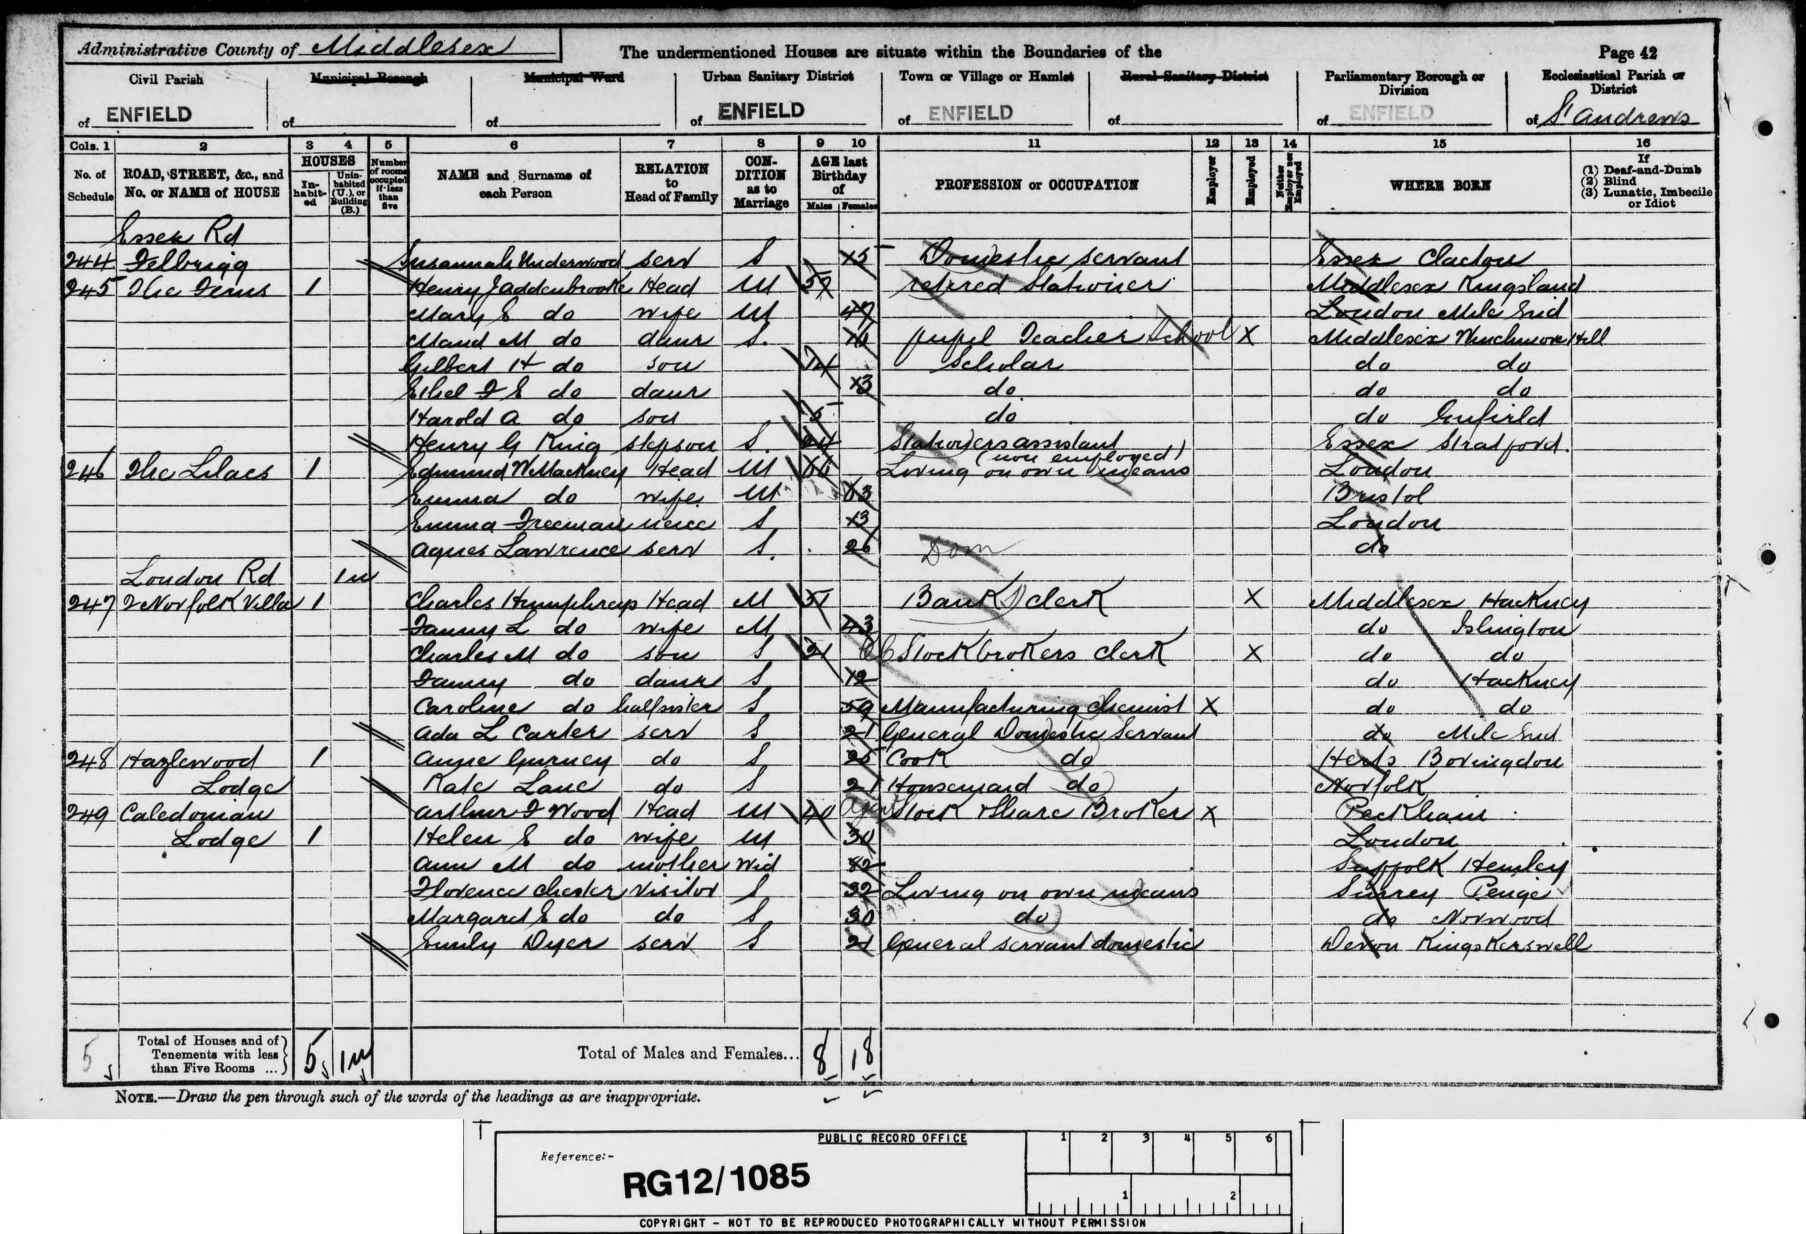 Administrative County of Middlesex The undermentioned Houses are situate within the Boundaries of the Page 42
Civil Parish Municipal Borough Municipal Ward Urban Sanitary District Town or Village or Hamlet Rural Sanitary District Parliamentary Borough or Division Ecclesiastical Parish or District
of ENFIELD of of of ENFIELD of ENFIELD of of ENFIELD of St Andrews
Cols. 1 2 3 4 5 6 7 8 9 10 11 12 13 14 15 16
No. of Schedule ROAD, STREET, &c., and No. or NAME of HOUSE HOUSES Inhabited Uninhabited (U.), or Building (B.) Number of rooms occupied if less than five NAME and Surname of each Person RELATION to Head of Family CONDITION as to Marriage AGE last Birthday of Males Females PROFESSION or OCCUPATION Employer Employed Neither Employer nor Employed WHERE BORN If (1) Deaf-and-Dumb (2) Blind (3) Lunatic, Imbecile or Idiot
Essex Rd
244 Felbrigg Susannah Underwood serv S 15 Domestic servant Essex Clacton
245 The Ferns 1 Henry J Addenbrooke Head M 52 retired Stationer Middlesex Kingsland
Mary E do wife M 47 London Mile End
Maud M do daur S. 16 pupil Teacher School X Middlesex Winchmore Hill
Gilbert H do son 14 Scholar do do
Ethel F E do daur 13 do do do
Harold A do son 5 do do Enfield
Henry G King stepson S. 24 Stationers assistant (non employed) Essex Stratford.
246 The Lilacs 1 Edmund W Mackney Head M 66 Living on own means London
Emma do wife M 63 Bristol
Emma Freeman niece S 13 London
Agnes Lawrence serv S. 26 Dom do
London Rd 1u
247 2 Norfolk Villa 1 Charles Humphreys Head M 51 Bank clerk X Middlesex Hackney
Fanny L do wife M 43 do Islington
Charles M do son S 21 Stockbrokers clerk X do do
Fanny do daur S 12 do Hackney
Caroline do half sister S 59 Manufacturing Chemist X do do
Ada L Carter serv S 21 General Domestic Servant do Mile End
248 Hazlewood 1 Annie Gurney do S 25 Cook do Herts Bovingdon
Lodge Kate Lane do S 21 Housemaid do Norfolk
249 Caledonian Arthur F Wood Head M 40 Stock & Share Broker X Peckham
Lodge 1 Helen E do wife M 30 London
Ann M do mother Wid 82 Suffolk Hemley
Florence Chester visitor S 32 Living on own means Surrey Penge
Margaret E do do S 30 do do Norwood
Emily Dyer serv S 21 General servant domestic Devon Kings Kerswell
5 Total of Houses and of Tenements with less than Five Rooms ... 5 1u Total of Males and Females... 8 18
NOTE.—Draw the pen through such of the words of the headings as are inappropriate.
PUBLIC RECORD OFFICE 1 2 3 4 5 6
Reference:-
RG12/1085
1 2
COPYRIGHT - NOT TO BE REPRODUCED PHOTOGRAPHICALLY WITHOUT PERMISSION